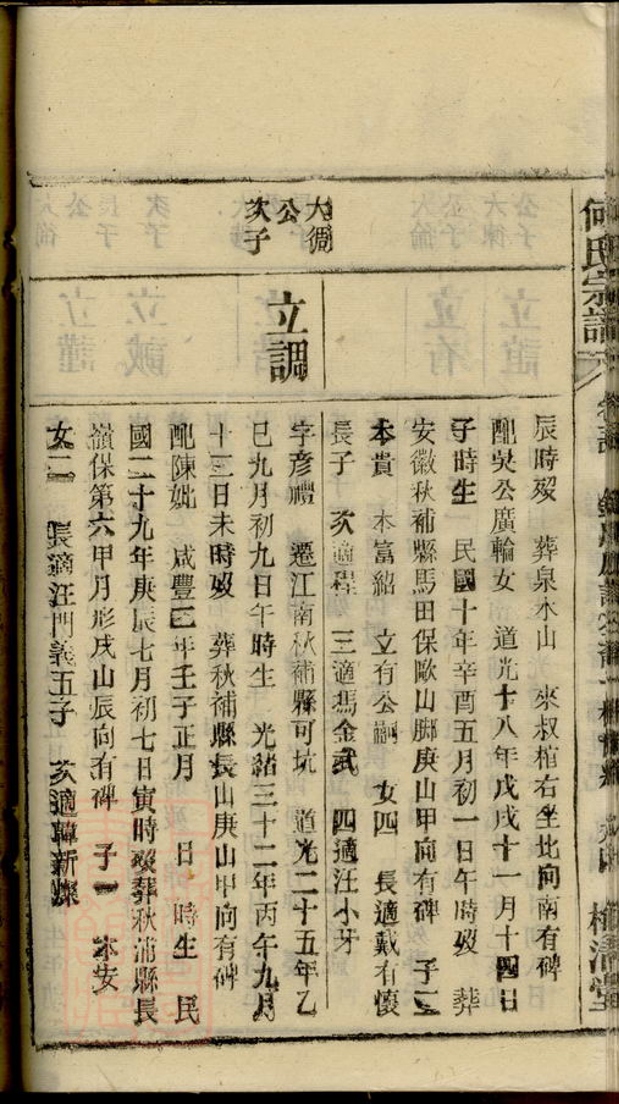 何氏宗譜
辰時歿 葬泉水山 來叔棺右坐北向南有碑
配吳公廣輪女 道光十八年戊戌十一月十四日
子時生 民國十年辛酉五月初一日午時歿 葬
安徽秋補縣馬田保歐山腳庚山甲向有碑 子二
本貴 本富紹 立有公嗣 女四 長適戴有懷
長子 次適程 三適馮金武 四適汪小牙
大徟
公
次子
立調
字彥禮 遷江南秋補縣可坑 道光二十五年乙
巳九月初九日午時生 光緒三十二年丙午九月
十三日未時歿 葬秋補縣長山庚山甲向有碑
配陳妣 咸豐 年壬子正月 日 時生 民
國二十九年庚辰七月初七日寅時歿葬秋浦縣長
嶺保第六甲月形戌山辰向有碑 子一 本安
女二 長適汪門義五子 次適韓新燦